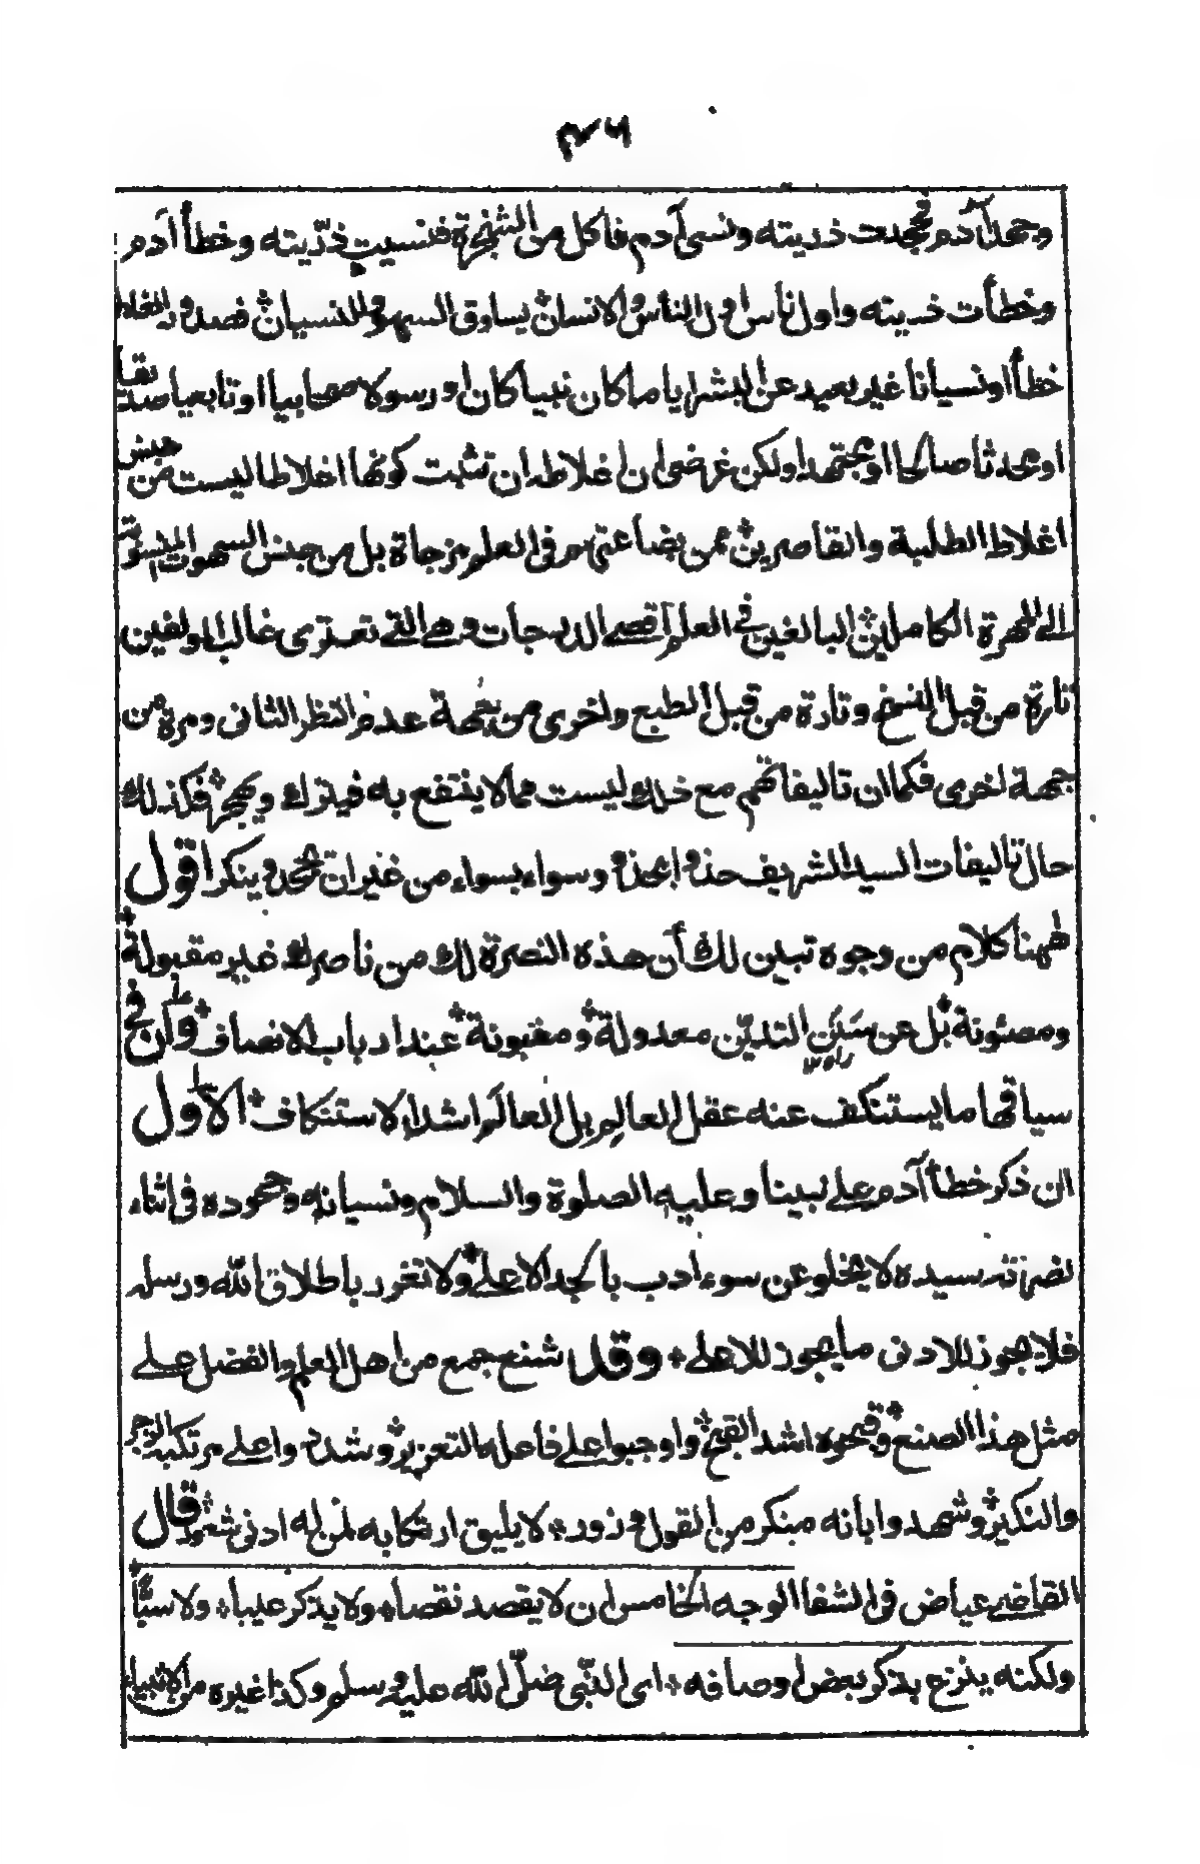 ٤٧٦
وجحد آدم فجحدت ذريته ونسى آدم فاكل من الشجرة فنسيت ذرّيته وخطأ آدم
وخطأت ذريته واول ناس اول الناس والانسان يساوق السهو والنسيان فصدور الغلط
خطأ او نسيانا غير بعيد عن البشر ايا ما كان نبيا كان او رسولا صحابيا او تابعيا صديقا
او محدثا صالحا او مجتهدا ولكن غرضى ان اغلاطه ان تثبت كونها اغلاطا ليست من جنس
اغلاط الطلبة والقاصرين ممن بضاعتهم فى العلم مزجاة بل من جنس السهوات المنسوبة
الى المهرة الكاملين البالغين فى العلم اقصى الدرجات وهى التى تعترى غالب المولفين
تارة من قبل النسخ وتارة من قبل الطبع واخرى من جهة عدم النظر الثانى ومرة من
جهة اخرى فكما ان تاليفاتهم مع ذلك ليست مما لا ينتفع به فيترك ويهجر فكذلك
حال تاليفات السيد الشريف حذوا بحذو وسواء بسواء من غير ان يجحد وينكر اقول
ههنا كلام من وجوه تبين لك أن هذه النصرة لك من ناصرك غير مقبولة
ومصئونة بل عن سَنَن التديّن معدولة ومغبونة عند ارباب الانصاف وان فى
سياقها ما يستنكف عنه عقل العالِم بل العالَم اشد الاستنكاف الاول
ان ذكر خطأ آدم على نبينا وعليه الصلوة والسلام ونسيانه وجحوده فى اثناء
نصرته سيده لا يخلو عن سوء ادب بالجد الاعلى ولا تغرر باطلاق الله ورسله
فلا يجوز للادنى ما يجوز للاعلى وقد شنع جمع من اهل العلم والفضل على
مثل هذا الصنع وقبحوه اشد القبح واوجبوا على فاعله التعزير وشددوا على مرتكبه الزجر
والنكير وشهدوا بانه منكر من القول وزور لا يليق ارتكابه لمن له ادنى شعور قال
القاضى عياض فى الشفا الوجه الخامس ان لا يقصد نقصا ولا يذكر عيبا ولا سبًّا
ولكنه ينزع بذكر بعض اوصافه اى النبى صلى الله عليه وسلم وكذا غيره من الانبياء